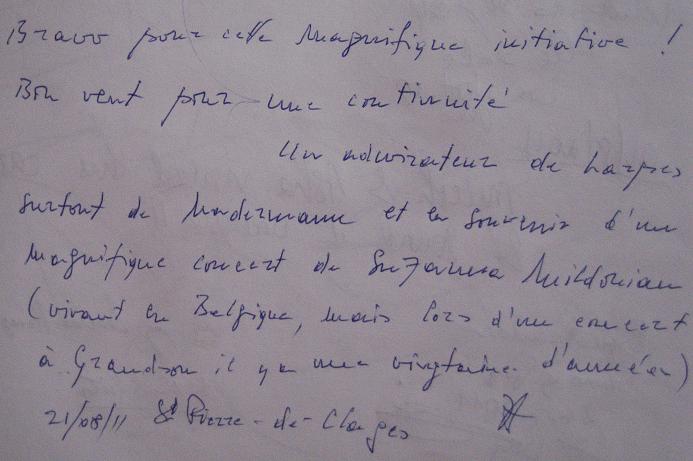 Bravo pour cette magnifique initiative !
Bon vent pour une continuité
Un admirateur de harpes
surtout de Naderman et en souvenir d'un
magnifique concert de Suzanna Mildonian
(vivant en Belgique, mais lors d'un concert
à Grandson il y a une vingtaine d'années)
21/08/11 St Pierre-de-Clages